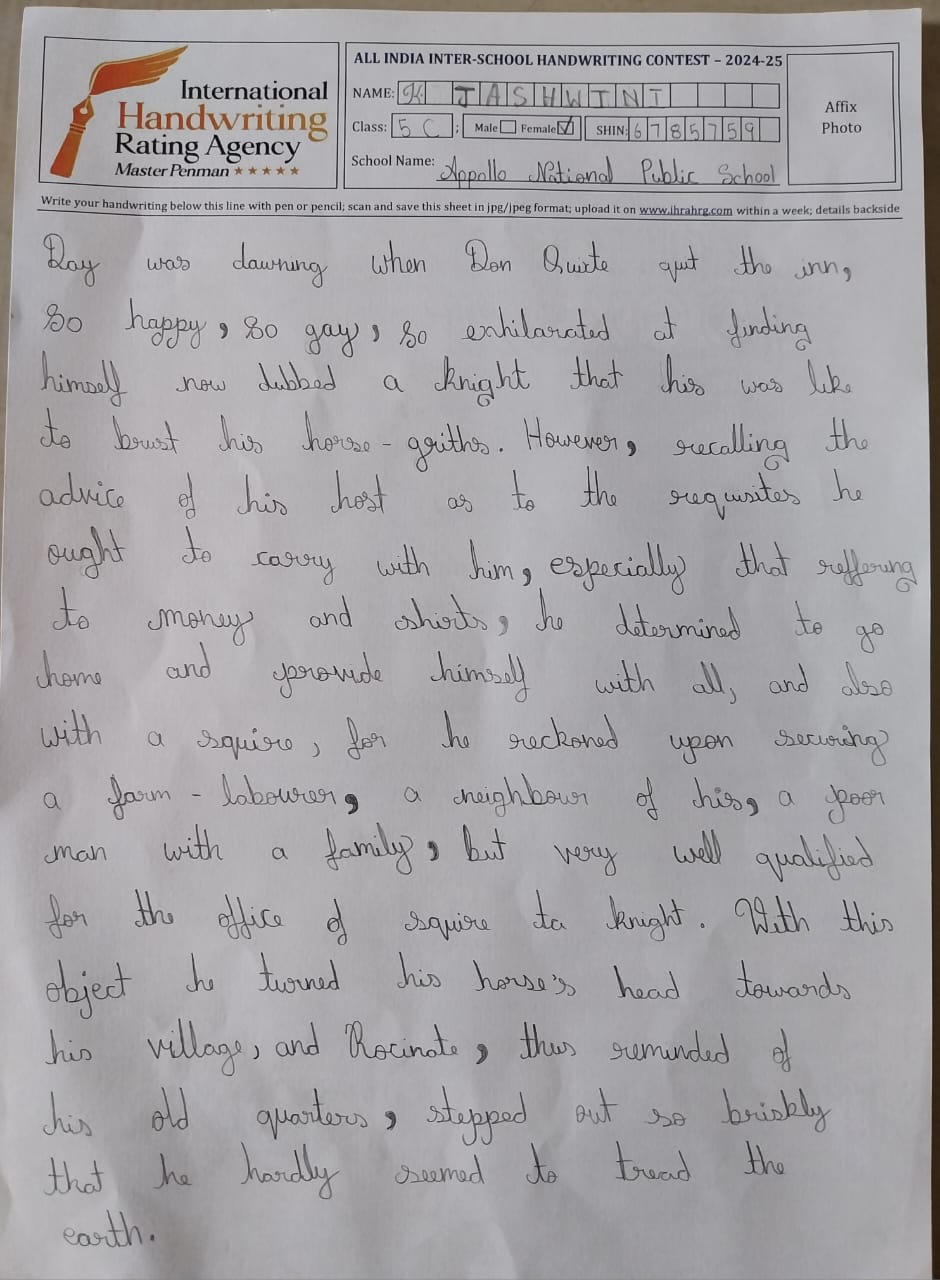 International
Handwriting
Rating Agency
Master Penman ★★★★★
ALL INDIA INTER-SCHOOL HANDWRITING CONTEST – 2024-25
NAME: K JASHWINI
Class: 5 C ; Male Female ✓ SHIN: 6785759
School Name: Appollo National Public School
Affix
Photo
Write your handwriting below this line with pen or pencil; scan and save this sheet in jpg/jpeg format; upload it on www.ihrahrg.com within a week; details backside
Day was dawning when Don Quixte quit the inn,
So happy, so gay, so exhilarated at finding
himself now dubbed a knight that his was like
to brust his horse - griths. However, recalling the
advice of his host as to the requisites he
ought to carry with him, especially that reffering
to money and shirts, he determined to go
home and provide himself with all, and also
with a squire, for he reckoned upon securing
a farm - labourer, a neighbour of his, a poor
man with a family, but very well qualified
for the office of squire ta knight. With this
object he turned his horse's head towards
his village, and Rocinate, thus reminded of
his old quarters, stepped out so briskly
that he hardly seemed to tread the
earth.